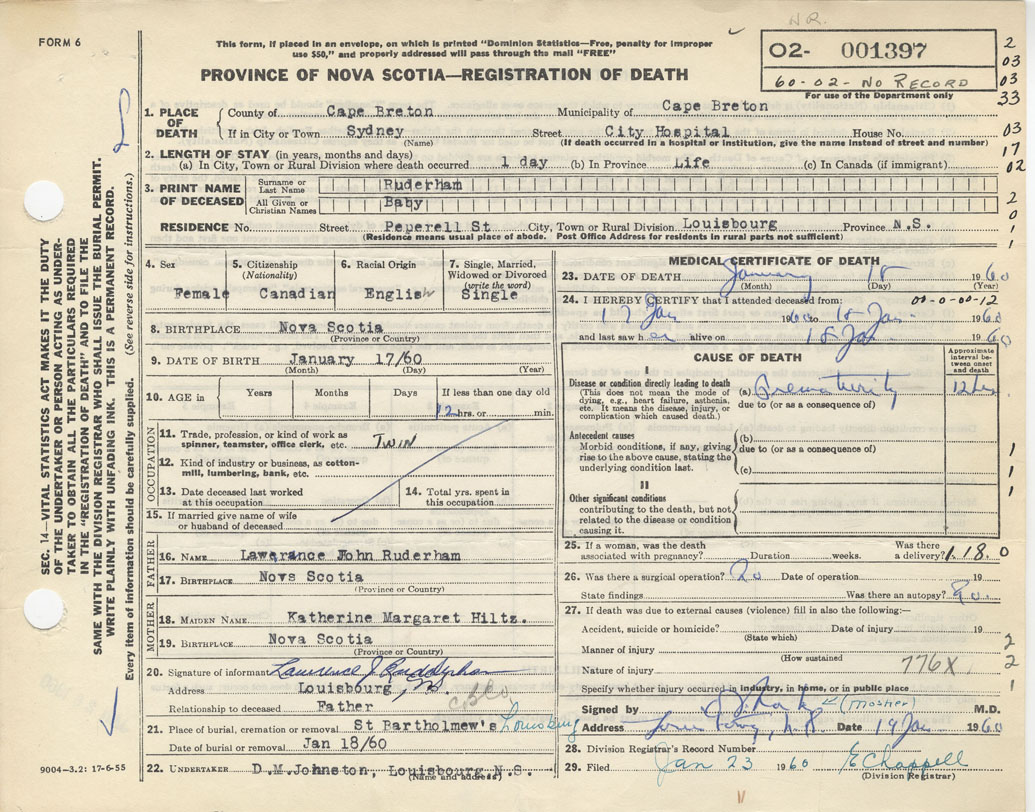 N.R.
FORM 6
This form, if placed in an envelope, on which is printed "Dominion Statistics—Free, penalty for improper
use $50," and properly addressed will pass through the mail "FREE"
PROVINCE OF NOVA SCOTIA—REGISTRATION OF DEATH
02- 001397
60-02-No Record
For use of the Department only
2
03
03
33
03
17
02
2
0
1
1
SEC. 14—VITAL STATISTICS ACT MAKES IT THE DUTY
OF THE UNDERTAKER OR PERSON ACTING AS UNDER-
TAKER TO OBTAIN ALL THE PARTICULARS REQUIRED
IN THE "REGISTRATION OF DEATH" AND TO FILE THE
SAME WITH THE DIVISION REGISTRAR WHO SHALL ISSUE THE BURIAL PERMIT.
WRITE PLAINLY WITH UNFADING INK. THIS IS A PERMANENT RECORD.
Every item of information should be carefully supplied. (See reverse side for instructions.)
1. PLACE OF DEATH County of Cape Breton Municipality of Cape Breton
If in City or Town Sydney Street City Hospital House No.
(Name) (If death occurred in a hospital or institution, give the name instead of street and number)
2. LENGTH OF STAY (in years, months and days)
(a) In City, Town or Rural Division where death occurred 1 day (b) In Province Life (c) In Canada (if immigrant)
3. PRINT NAME OF DECEASED Surname or Last Name Ruderham
All Given or Christian Names Baby
RESIDENCE No. Street Peperell St City, Town or Rural Division Louisbourg Province N.S.
(Residence means usual place of abode. Post Office Address for residents in rural parts not sufficient)
4. Sex 5. Citizenship (Nationality) 6. Racial Origin 7. Single, Married, Widowed or Divorced (write the word)
Female Canadian English Single
8. BIRTHPLACE Nova Scotia
(Province or Country)
9. DATE OF BIRTH January 17/60
(Month) (Day) (Year)
10. AGE in Years Months Days If less than one day old
12 hrs. or min.
OCCUPATION
11. Trade, profession, or kind of work as spinner, teamster, office clerk, etc. TWIN
12. Kind of industry or business, as cotton-mill, lumbering, bank, etc.
13. Date deceased last worked at this occupation 14. Total yrs. spent in this occupation
15. If married give name of wife or husband of deceased
FATHER
16. NAME Lawerance John Ruderham
17. BIRTHPLACE Nova Scotia
(Province or Country)
MOTHER
18. MAIDEN NAME Katherine Margaret Hiltz.
19. BIRTHPLACE Nova Scotia
(Province or Country)
20. Signature of informant Lawrence J Rudderham
Address Louisbourg, NS
Relationship to deceased Father
21. Place of burial, cremation or removal St Bartholmew's Louisburg
Date of burial or removal Jan 18/60
22. UNDERTAKER D.M.Johnston, Louisbourg,N.S.
(Name and address)
9004-3.2: 17-6-55
MEDICAL CERTIFICATE OF DEATH
23. DATE OF DEATH January 18 1960
(Month) (Day) (Year)
24. I HEREBY CERTIFY that I attended deceased from: 00-0-00-12
17 Jan 1960 to 18 Jan 1960
and last saw her alive on 18 Jan 1960
CAUSE OF DEATH
Approximate interval between onset and death
I
Disease or condition directly leading to death
(This does not mean the mode of dying, e.g., heart failure, asthenia, etc. It means the disease, injury, or complication which caused death.)
(a) Prematurity 12 hrs
due to (or as a consequence of)
Antecedent causes
Morbid conditions, if any, giving rise to the above cause, stating the underlying condition last.
(b)
due to (or as a consequence of)
(c)
1
1
II
Other significant conditions
contributing to the death, but not related to the disease or condition causing it.
1
25. If a woman, was the death associated with pregnancy? Duration weeks. Was there a delivery? 1.18.0
26. Was there a surgical operation? No Date of operation 19
State findings Was there an autopsy? No.
27. If death was due to external causes (violence) fill in also the following:—
Accident, suicide or homicide? Date of injury 19
(State which)
2
Manner of injury
(How sustained
2
Nature of injury 776X
Specify whether injury occurred in industry, in home, or in public place
1
Signed by (Mosher) M.D.
Address Date 19 Jan 1960
28. Division Registrar's Record Number
29. Filed Jan 23 1960 E Chappell
(Division Registrar)